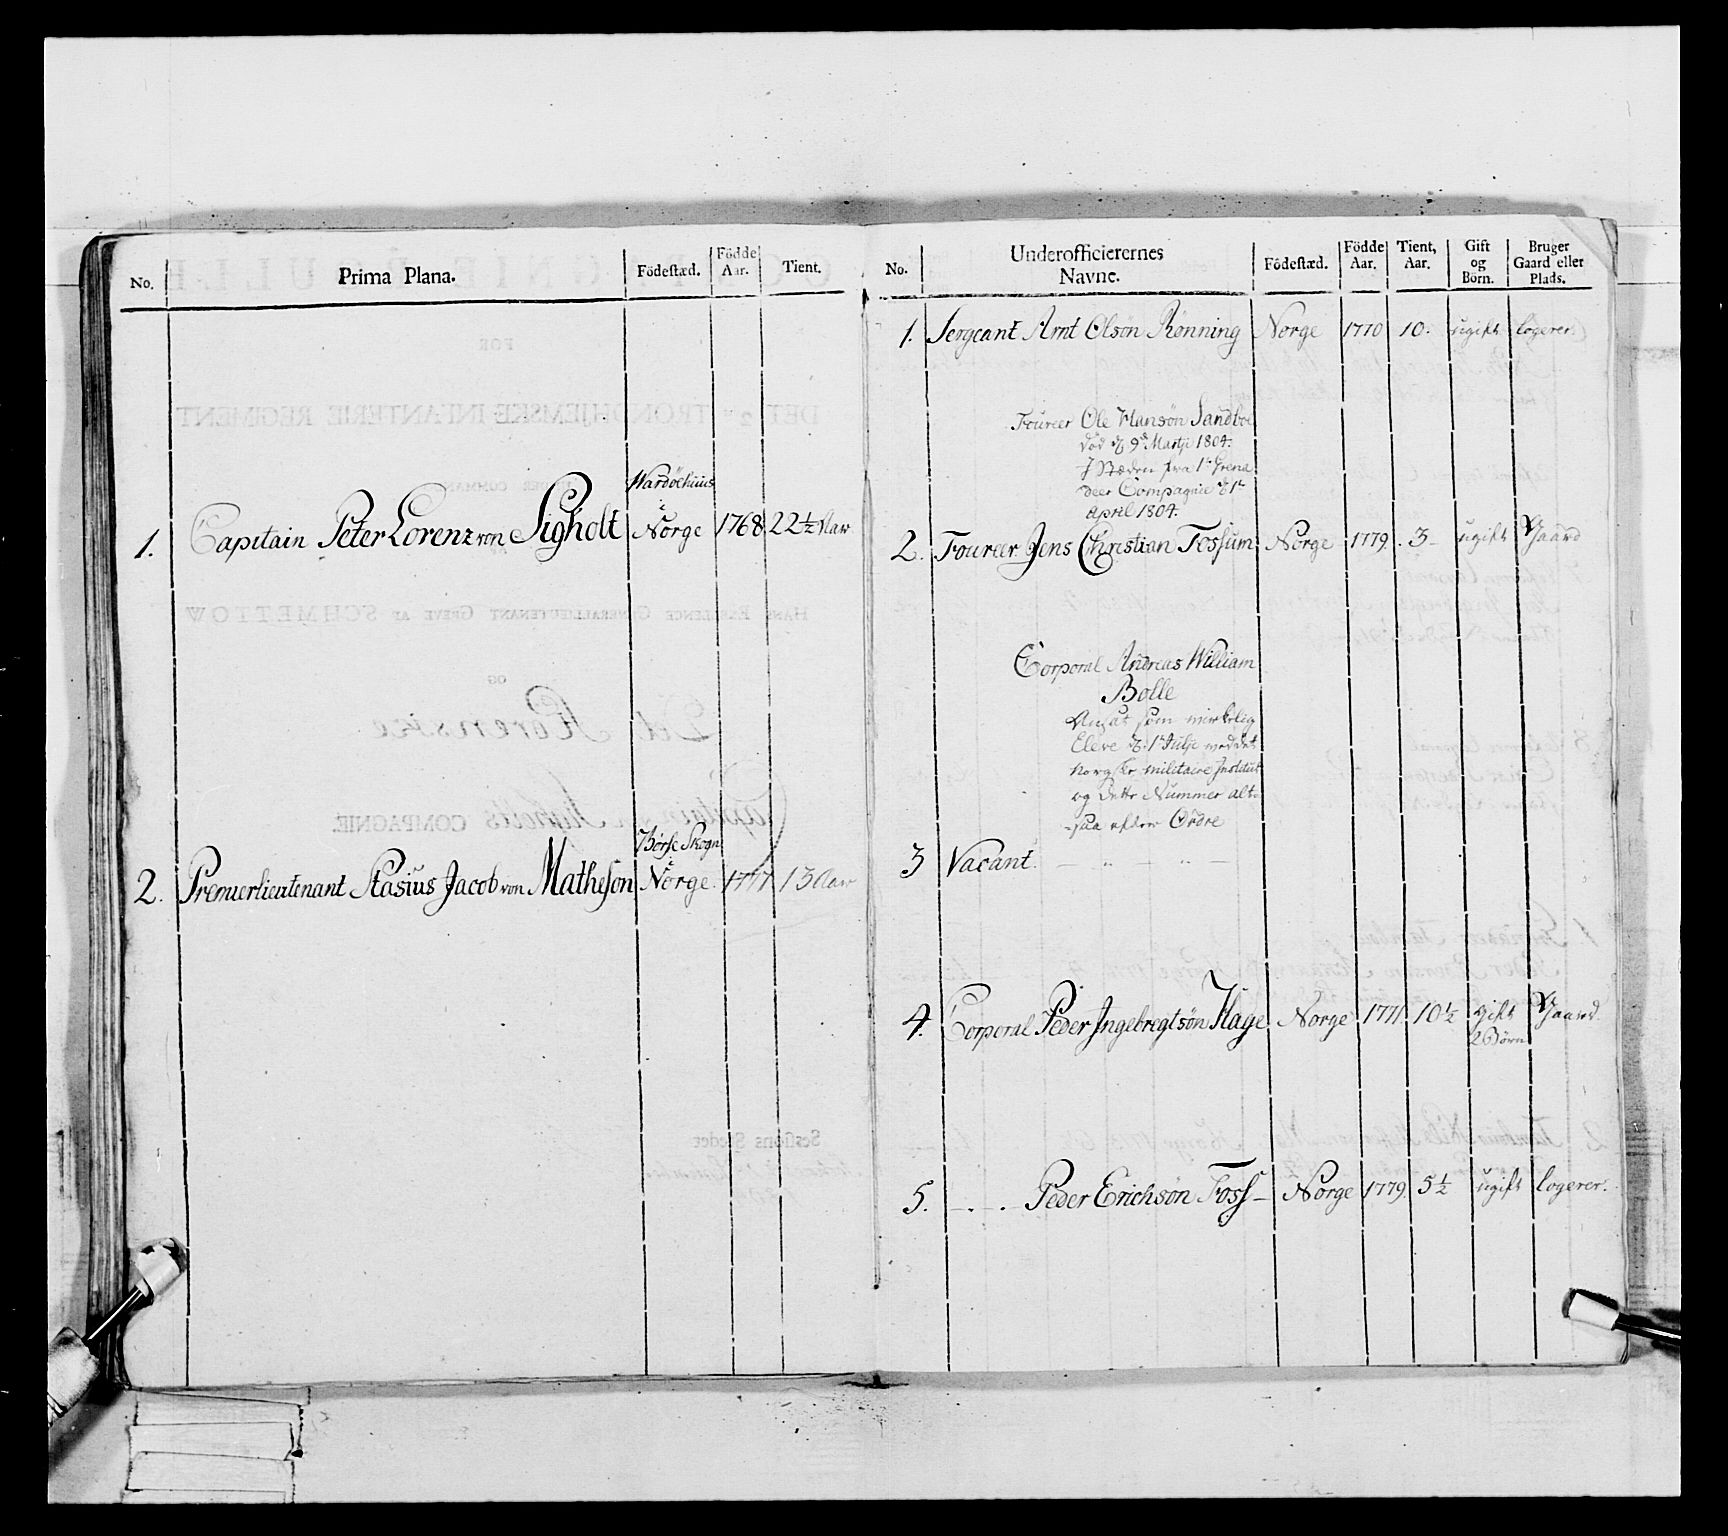 No.
Prima Plana.
Födestæd.
Födde
Aar.
Tient.
Wardöehuus
i
1. Capitain Peter Lorenz von Sigholt Norge 1768 22½ Aar
Börse Skogn
2. Premierlieutenant Stasius Jacob von Matheson Norge 1777 13 Aar
No.
Underofficierernes
Navne.
Födestæd.
Födde
Aar.
Tient,
Aar.
Gift
og
Börn.
Bruger
Gaard eller
Plads.
1. Sergeant Arnt Olsön Rönning Norge 1770 10. ugift logerer.
Foureer Ole Hansön Sandboe
död d. 9de Martji 1804.
I Stæden fra 1te Grena
deer Compagnie d. 1te
April 1804.
2. Foureer Jens Christian Fossum Norge 1779 3 ugift Gaard
Corporal Andreas William
Bolle
Ansat som wirkelig
Eleve d. 1te Julji ved det
Norgske militaire Institut
og dette Nummer alt-
saa efter Ordre
3 Vacant.
4. Corporal Peder Ingebregtsön Hage Norge 1771 10½ gift Gaard.
2 Börn
5. Peder Erichsön Foss Norge 1779 5½ ugift logerer.